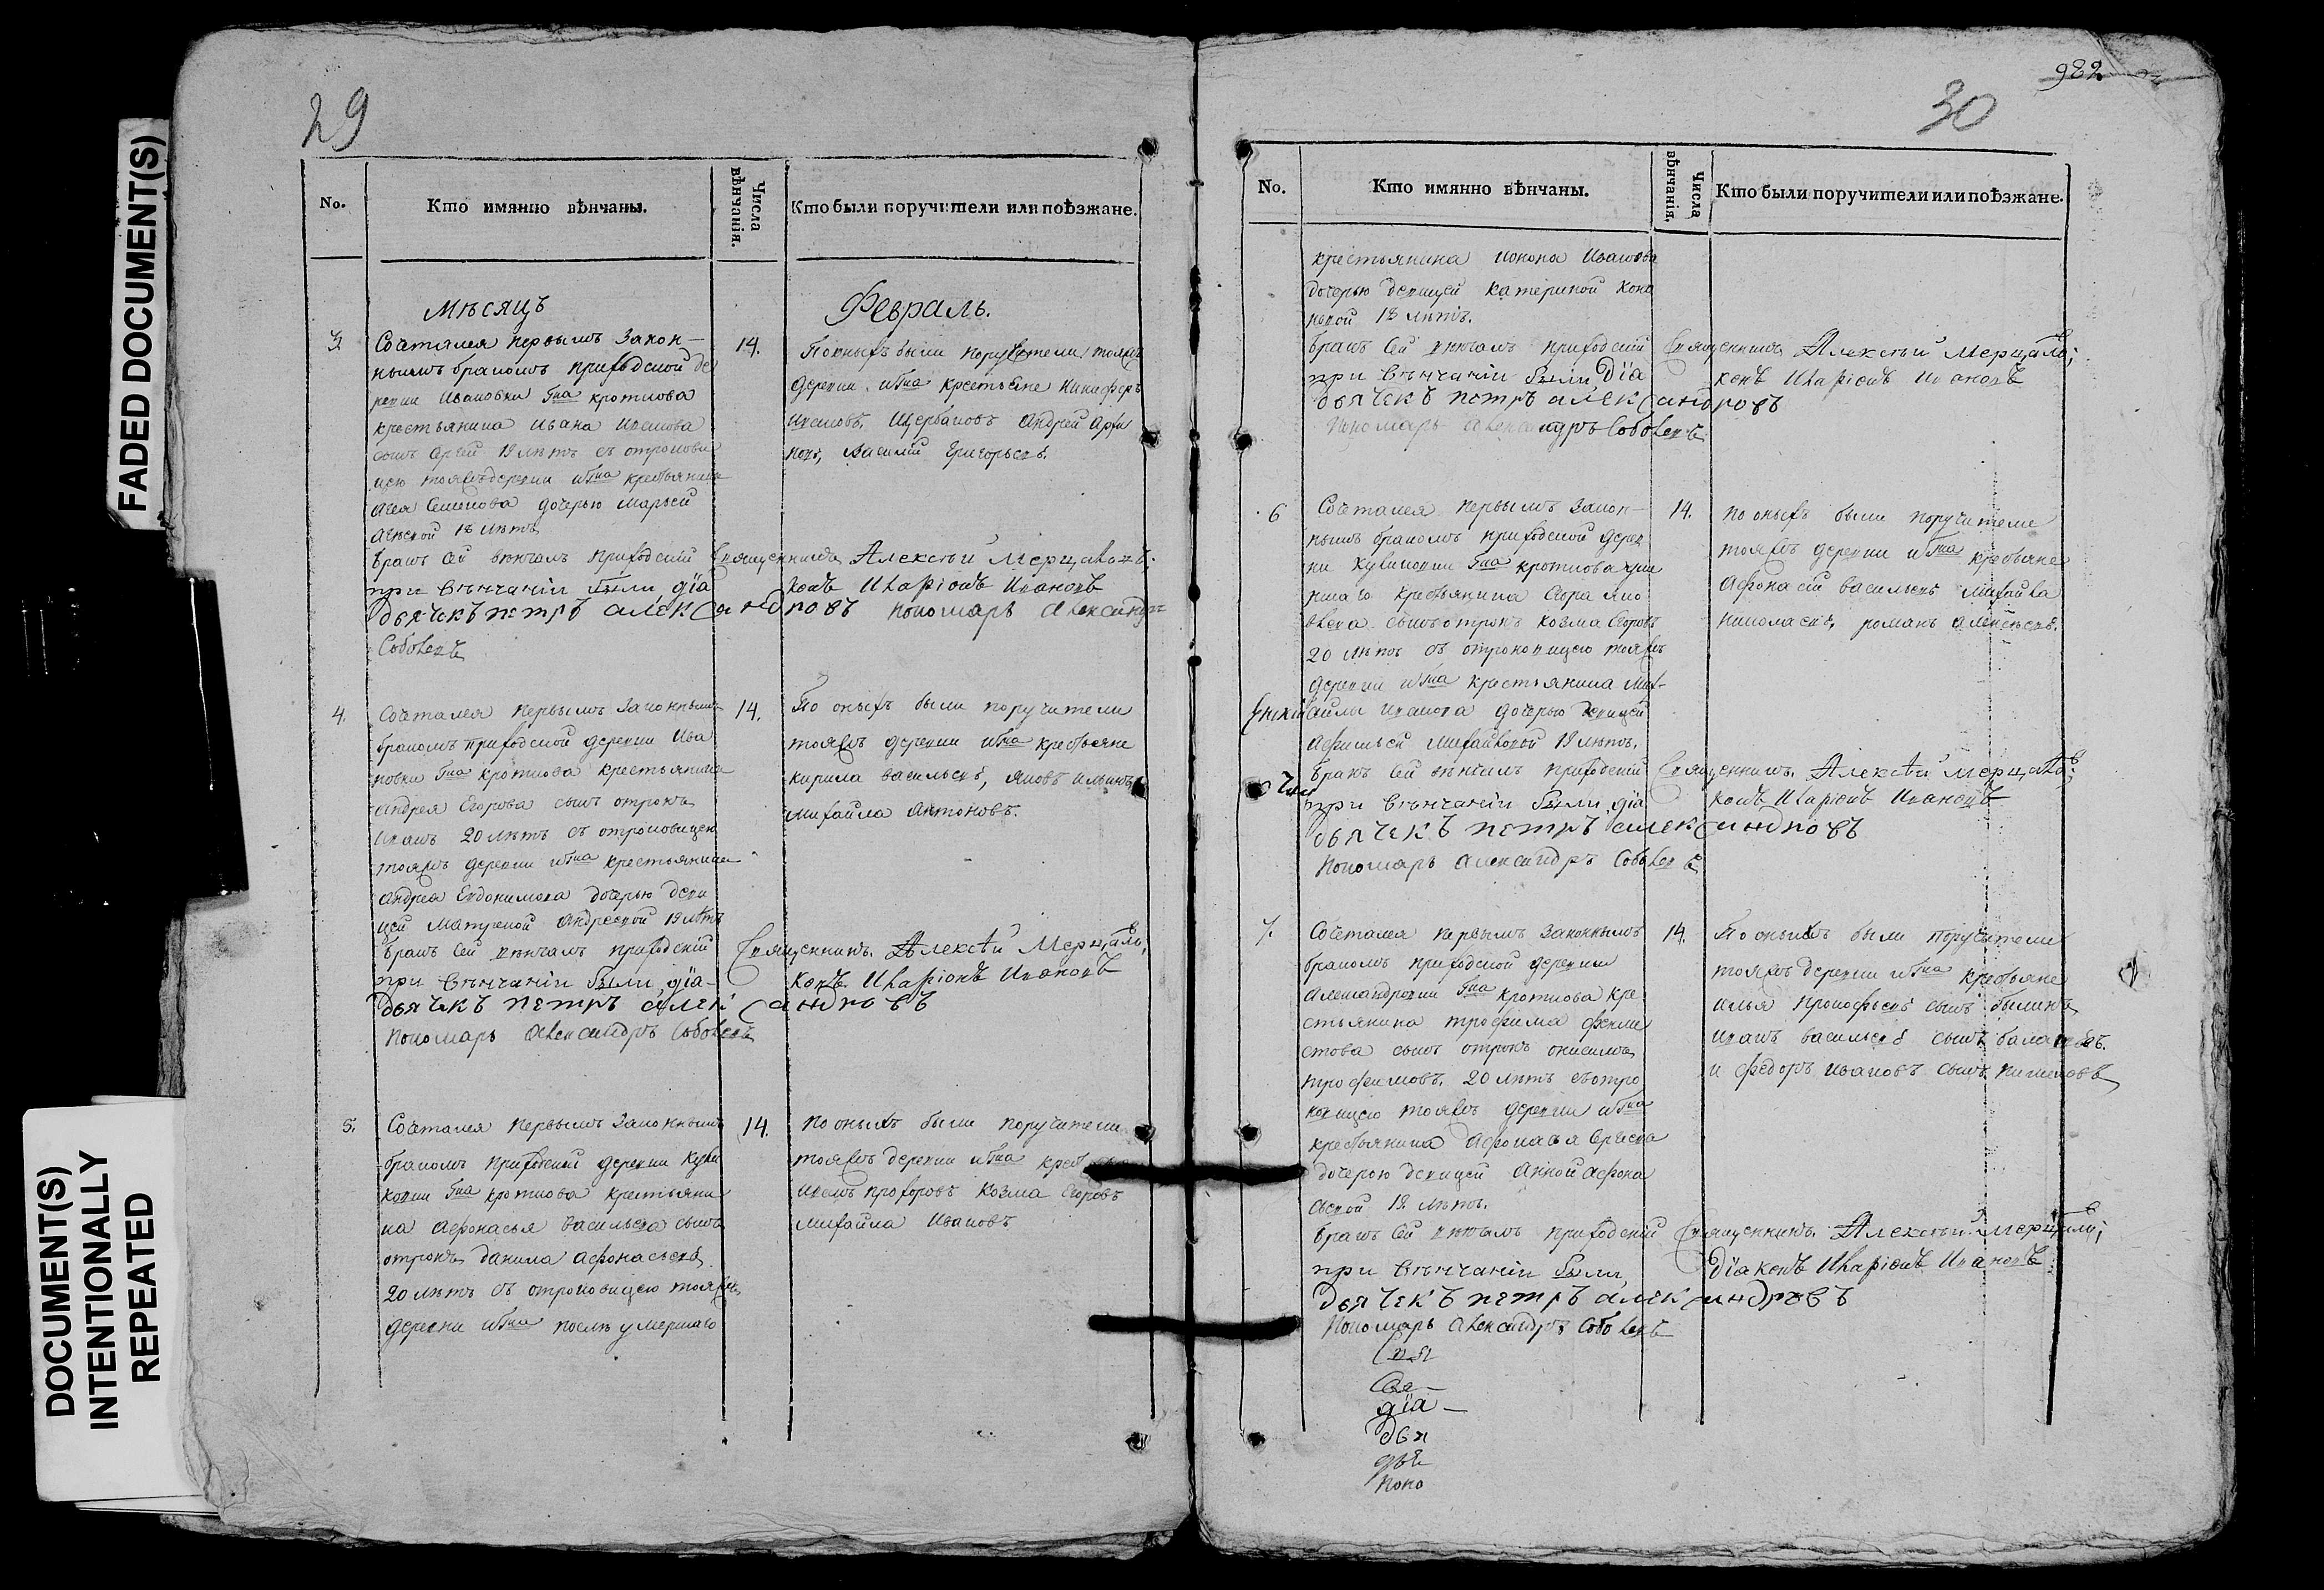 FADED DOCUMENT(S)
DOCUMENT(S)
INTENTIONALLY
REPEATED
29
No.
Кто имянно вѣнчаны.
Числа
вѣнчанія.
Кто были поручители или поѣзжане.
Мѣсяцъ
Февраль.
3.
Сочетался первымъ закон-
нымъ бракомъ приходской де
ревни Ивановки Гна кроткова
крестьянина Ивана Иванова
сынъ Сергей 19 лѣтъ съ отрокови
цею тояжъ деревни итна крестьянина
Агея Семенова дочерью Марьей
Агѣевой 18 лѣтъ
14.
По оныхъ были поручители тояжъ
деревни итна крестьяне Никифоръ
Ивановъ Щербаковъ Андрей
Василій Григорьевъ.
бракъ сей вѣнчалъ приходскій Священникъ Алексѣй Мерцаловъ.
при вѣнчаніи были, діаконъ Иларіонъ Ивановъ
дьячекъ петръ александровъ пономарь Александръ
Соболевъ
4.
Сочетался первымъ законнымъ
бракомъ приходской деревни Ива
новки Гна кроткова крестьянина
андрея Егорова сынъ отрокъ
Иванъ 20 лѣтъ съ отроковицею
тояжъ деревни итна крестьянина
андрея Евдокимова дочерью деви
цей Матреной Андреевой 19 лѣтъ
14.
По оныхъ были поручители
тояжъ деревни итна крестьяне
кирила васильевъ, яковъ ильинъ
михайла Антоновъ.
бракъ сей вѣнчалъ приходскій Священникъ. Алексѣй Мерцаловъ,
при вѣнчаніи были, діа-конъ. Иларіонъ Ивановъ
дьячекъ петръ александровъ
пономарь Александръ Соболевъ
5.
Сочетался первымъ законнымъ
бракомъ приходской деревни
Гна кроткова крестьяни
на Афонасья васильева сынъ
отрокъ данила афонасьевъ
20 лѣтъ съ отроковицею тояжъ
деревни итна послѣ умершаго
14.
по оныхъ были поручители
тояжъ деревни итна
иванъ прохоровъ козма Егоровъ
михайла Ивановъ
982
30
No.
Кто имянно вѣнчаны.
Числа
вѣнчанія.
Кто были поручители или поѣзжане.
крестьянина Иванова
дочерью девицей катериной
18 лѣтъ.
бракъ сей вѣнчалъ приходскій Священникъ Алексѣй Мерцаловъ;
при вѣнчаніи были, діаконъ Иларіонъ Ивановъ
дьячекъ петръ александровъ
пономарь Александръ Соболевъ
6
Сочетался первымъ закон-
нымъ бракомъ приходской дерев
ни Гна кроткова умер
шаго крестьянина Егора яко
влева сынъ отрокъ козма Егоровъ
20 лѣтъ съ отроковицею тояжъ
деревни итна крестьянина мих-
айлы иванова дочерью девицей
михайловой 19 лѣтъ.
14.
по оныхъ были поручители
тояжъ деревни итна крестьяне
Афонасій васильевъ михайла
николаевъ, романъ алексѣевъ.
бракъ сей вѣнчалъ приходскій Священникъ. Алексѣй Мерцаловъ;
при вѣнчаніи были, діаконъ Иларіонъ Ивановъ
дьячекъ петръ александровъ
пономарь Александръ Соболевъ
7.
Сочетался первымъ законнымъ
бракомъ приходской деревни
Александровки Гна кроткова кре
стьянина трофима
сынъ отрокъ онисимъ
трофимовъ. 20 лѣтъ съ отро
ковицею тояжъ деревни итна
крестьянина Афонасья
дочерью девицей Анной афона
сьевой 19 лѣтъ.
14.
По оныхъ были поручители
тояжъ деревни итна крестьяне
илья прокофьевъ сынъ
иванъ васильевъ сынъ
и федоръ ивановъ сынъ
бракъ сей вѣнчалъ приходскій Священникъ. Алексѣй Мерцаловъ;
при вѣнчаніи были, діаконъ Иларіонъ Ивановъ
дьячекъ петръ александровъ
пономарь Александръ Соболевъ
Свя
Свя-
діа-
дья
дья
поно